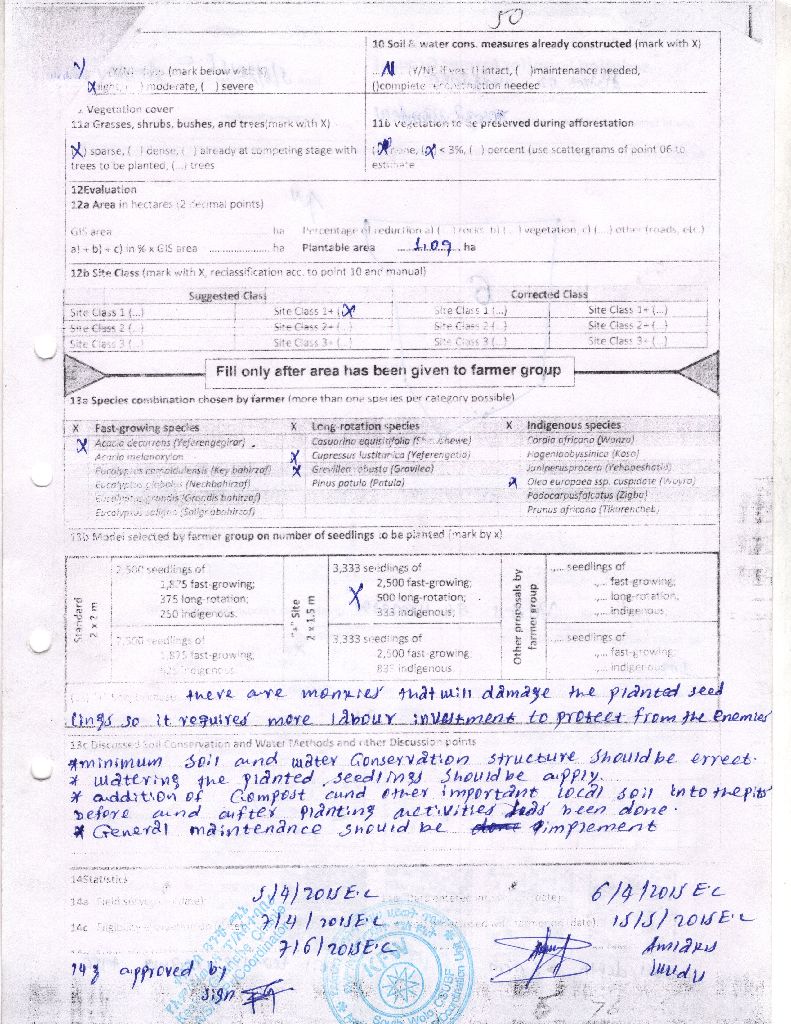 50
10 Soil & water cons. measures already constructed (mark with X)
Y (Y/N) (mark below with X)
N (Y/N), if yes: () intact, ( )maintenance needed,
X light, ( ) moderate, ( ) severe
()complete reconstruction needed
Vegetation cover
11a Grasses, shrubs, bushes, and trees(mark with X)
11b vegetation to be preserved during afforestation
X) sparse, ( ) dense, ( ) already at competing stage with
trees to be planted, (...) trees
none, (X < 3%, ( ) percent (use scattergrams of point 06 to
estimate
12Evaluation
12a Area in hectares (2 decimal points)
GIS area ha Percentage of reduction a) ( ) rocks, b) ( ) vegetation, c) (...) other (roads, etc.)
a) + b) + c) in % x GIS area ................... ha Plantable area 1.09 ha
12b Site Class (mark with X, reclassification acc. to point 10 and manual)
Suggested Class Corrected Class
Site Class 1 (...) Site Class 1+ (X Site Class 1 (...) Site Class 1+ (...)
Site Class 2 (...) Site Class 2+ (...) Site Class 2 (...) Site Class 2+ (...)
Site Class 3 (...) Site Class 3+ (...) Site Class 3 (...) Site Class 3+ (...)
Fill only after area has been given to farmer group
13a Species combination chosen by farmer (more than one species per category possible)
X Fast-growing species X Long-rotation species X Indigenous species
X Acacia decurrens (Yeferengegirar) Casuarina equisitifolia (Shewshewe) Cordia africana (Wanza)
Acacia melanoxylon X Cupressus lustitarica (Yeferengetid) Hageniaabyssinica (Koso)
Eucalyptus camaldulensis (Key bahirzaf) X Grevillea robusta (Gravilea) Juniperusprocera (Yehabeshatid)
Eucalyptus globolus (Nechbahirzaf) Pinus patula (Patula) X Olea europaea ssp. cuspidate (Woyra)
Eucalyptus grandis (Grandis bahirzaf) Podocarpusfalcatus (Zigba)
Eucalyptus saligna (Salignabahirzaf) Prunus africana (Tikurenchet)
13b Model selected by farmer group on number of seedlings to be planted (mark by x)
Standard
2 x 2 m
2,500 seedlings of
1,875 fast-growing;
375 long-rotation;
250 indigenous.
2,500 seedlings of
1,875 fast-growing,
625 indigenous
"+" Site
2 x 1.5 m
X
3,333 seedlings of
2,500 fast-growing;
500 long-rotation;
333 indigenous;
3,333 seedlings of
2,500 fast-growing
833 indigenous
Other proposals by
farmer group
..... seedlings of
.... fast-growing;
.... long-rotation,
.... indigenous
..... seedlings of
.... fast-growing;
.... indigenous
there are monkies that will damage the planted seed
lings so it requires more labour investment to protect from the enemies
13c Discussed Soil Conservation and Water Methods and other Discussion points
*minimum soil and water Conservation structure should be errect.
* watering the planted seedlings should be apply.
* addition of compost and other important local soil into the pits
before and after planting activities has been done.
* General maintenance should be done implement
14Statistics
14a Field survey (date) 5/4/2015 E.C 6/4/2015 E.C
14c 7/4/2015 E.C (date) 15/5/2015 E.C
7/6/2015E.C
14g approved by
sign
KFW
South Wolo
Coordination